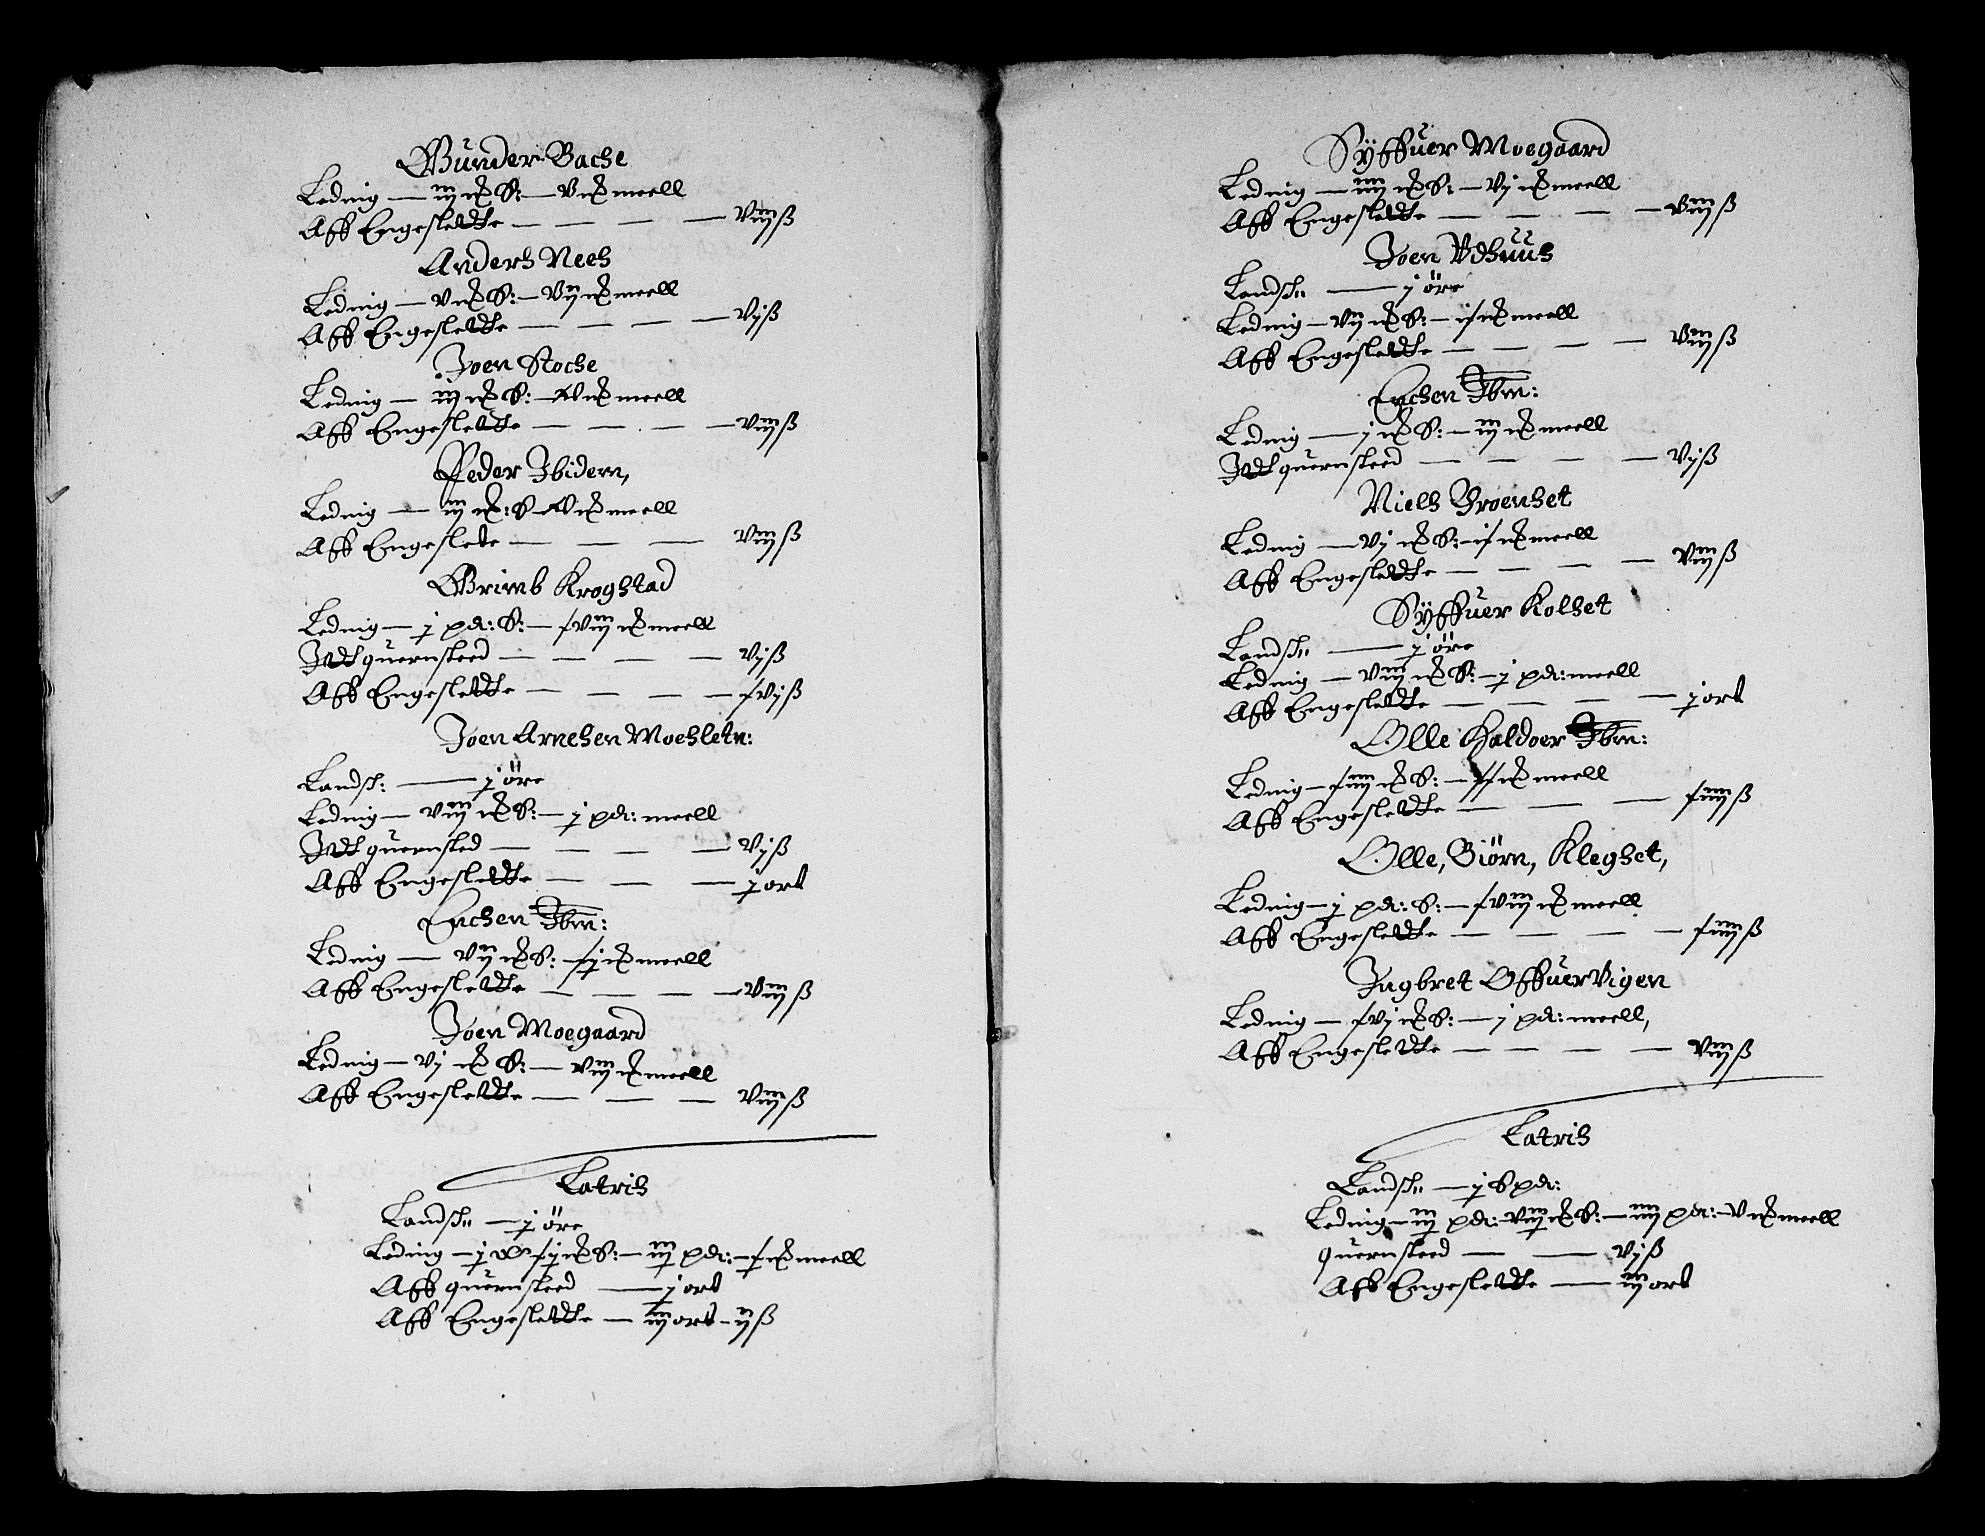 Gunder Bache
Leding — iij ℔ S: — V ℔ meell
Aff Engeslette — — — — Viij ß
Anders Nees
Leding — V ℔ S: — Vij ℔ meell
Aff Engeslette — — — — Vj ß
Joen Stoche
Leding — iij ℔ S: — V ℔ meell
Aff Engeslette — — — — Viij ß
Peder Ibidem,
Leding — iij ℔: S — V ℔ meell
Aff Engeslete — — — Viij ß
Grimb Krogstad
Leding — j pd: S: — Viij ℔ meell
Jtt quernsteed — — — — Vj ß
Aff Engeslette — — — — Vj ß
Joen Arnesen Moesletn:
Landsk: — j öre
Leding — Viij ℔ S: — j pd: meell
Jtt quernsted — — — — Vj ß
Aff Engeslette — — — j ort
Erichen Ibm:
Leding — Vij ℔ S: — j ℔ meell
Aff Engeslette — — — — Viij ß
Joen Moegaard
Leding — Vj ℔ S: — Viij ℔ meell
Aff Engeslette — — — Viij ß
Latris
Landsk: — j öre
Leding — j ℔ S: — iij pd: — ℔ meell
Aff quernsteed — j ort
Aff Engeslette — iij ort — ij ß
Syffuer Moegaard
Leding — iiij ℔ S: — Vj ℔ meell
Aff Engeslette — — — — Viij ß
Joen Udhuus
Landsk: — j öre
Leding — Vij ℔ S: — ℔ meell
Aff Engeslette — — — — Viij ß
Erichen Ibm:
Leding — j ℔ S: — iij ℔ meell
Jtt quernsteed — — — — Vj ß
Niels Groenset
Leding — Vj ℔ S: — ℔ meell
Aff Engeslette — — — — Viij ß
Syffuer Kolset
Landsk: — j öre
Leding — Viij ℔ S: — j pd: meell
Aff Engeslette — — — — j ort
Olle Haldoer Ibm:
Leding — iiij ℔ S: — ℔ meell
Aff Engeslette — — — iiij ß
Olle, Biörn, Klegset,
Leding — j pd: S: — Viij ℔ meell
Aff Engeslette — — — — iiij ß
Ingbret Offuervigen
Leding — Vj ℔ S: — j pd: meell,
Aff Engeslette — — — — Viij ß
Latris
Landsk: — j S pd:
Leding — iij pd: Viij ℔ S: — iiij pd: — V ℔ meell
quernsteed — — Vj ß
Aff Engeslette — iij ort